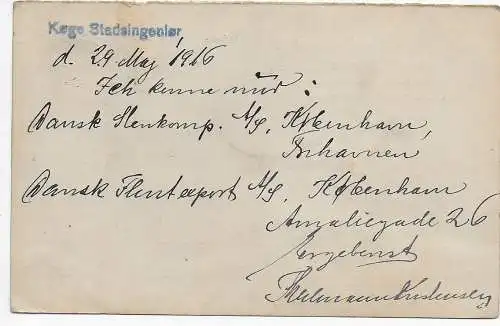 Køge Stadsingeniør
d. 29 Maj 1916
Ich kenne nur:
Dansk Stenkomp. A/S, København,
Frihavnen
Dansk Flintexport A/S, København
Amaliegade 26
Ergebenst